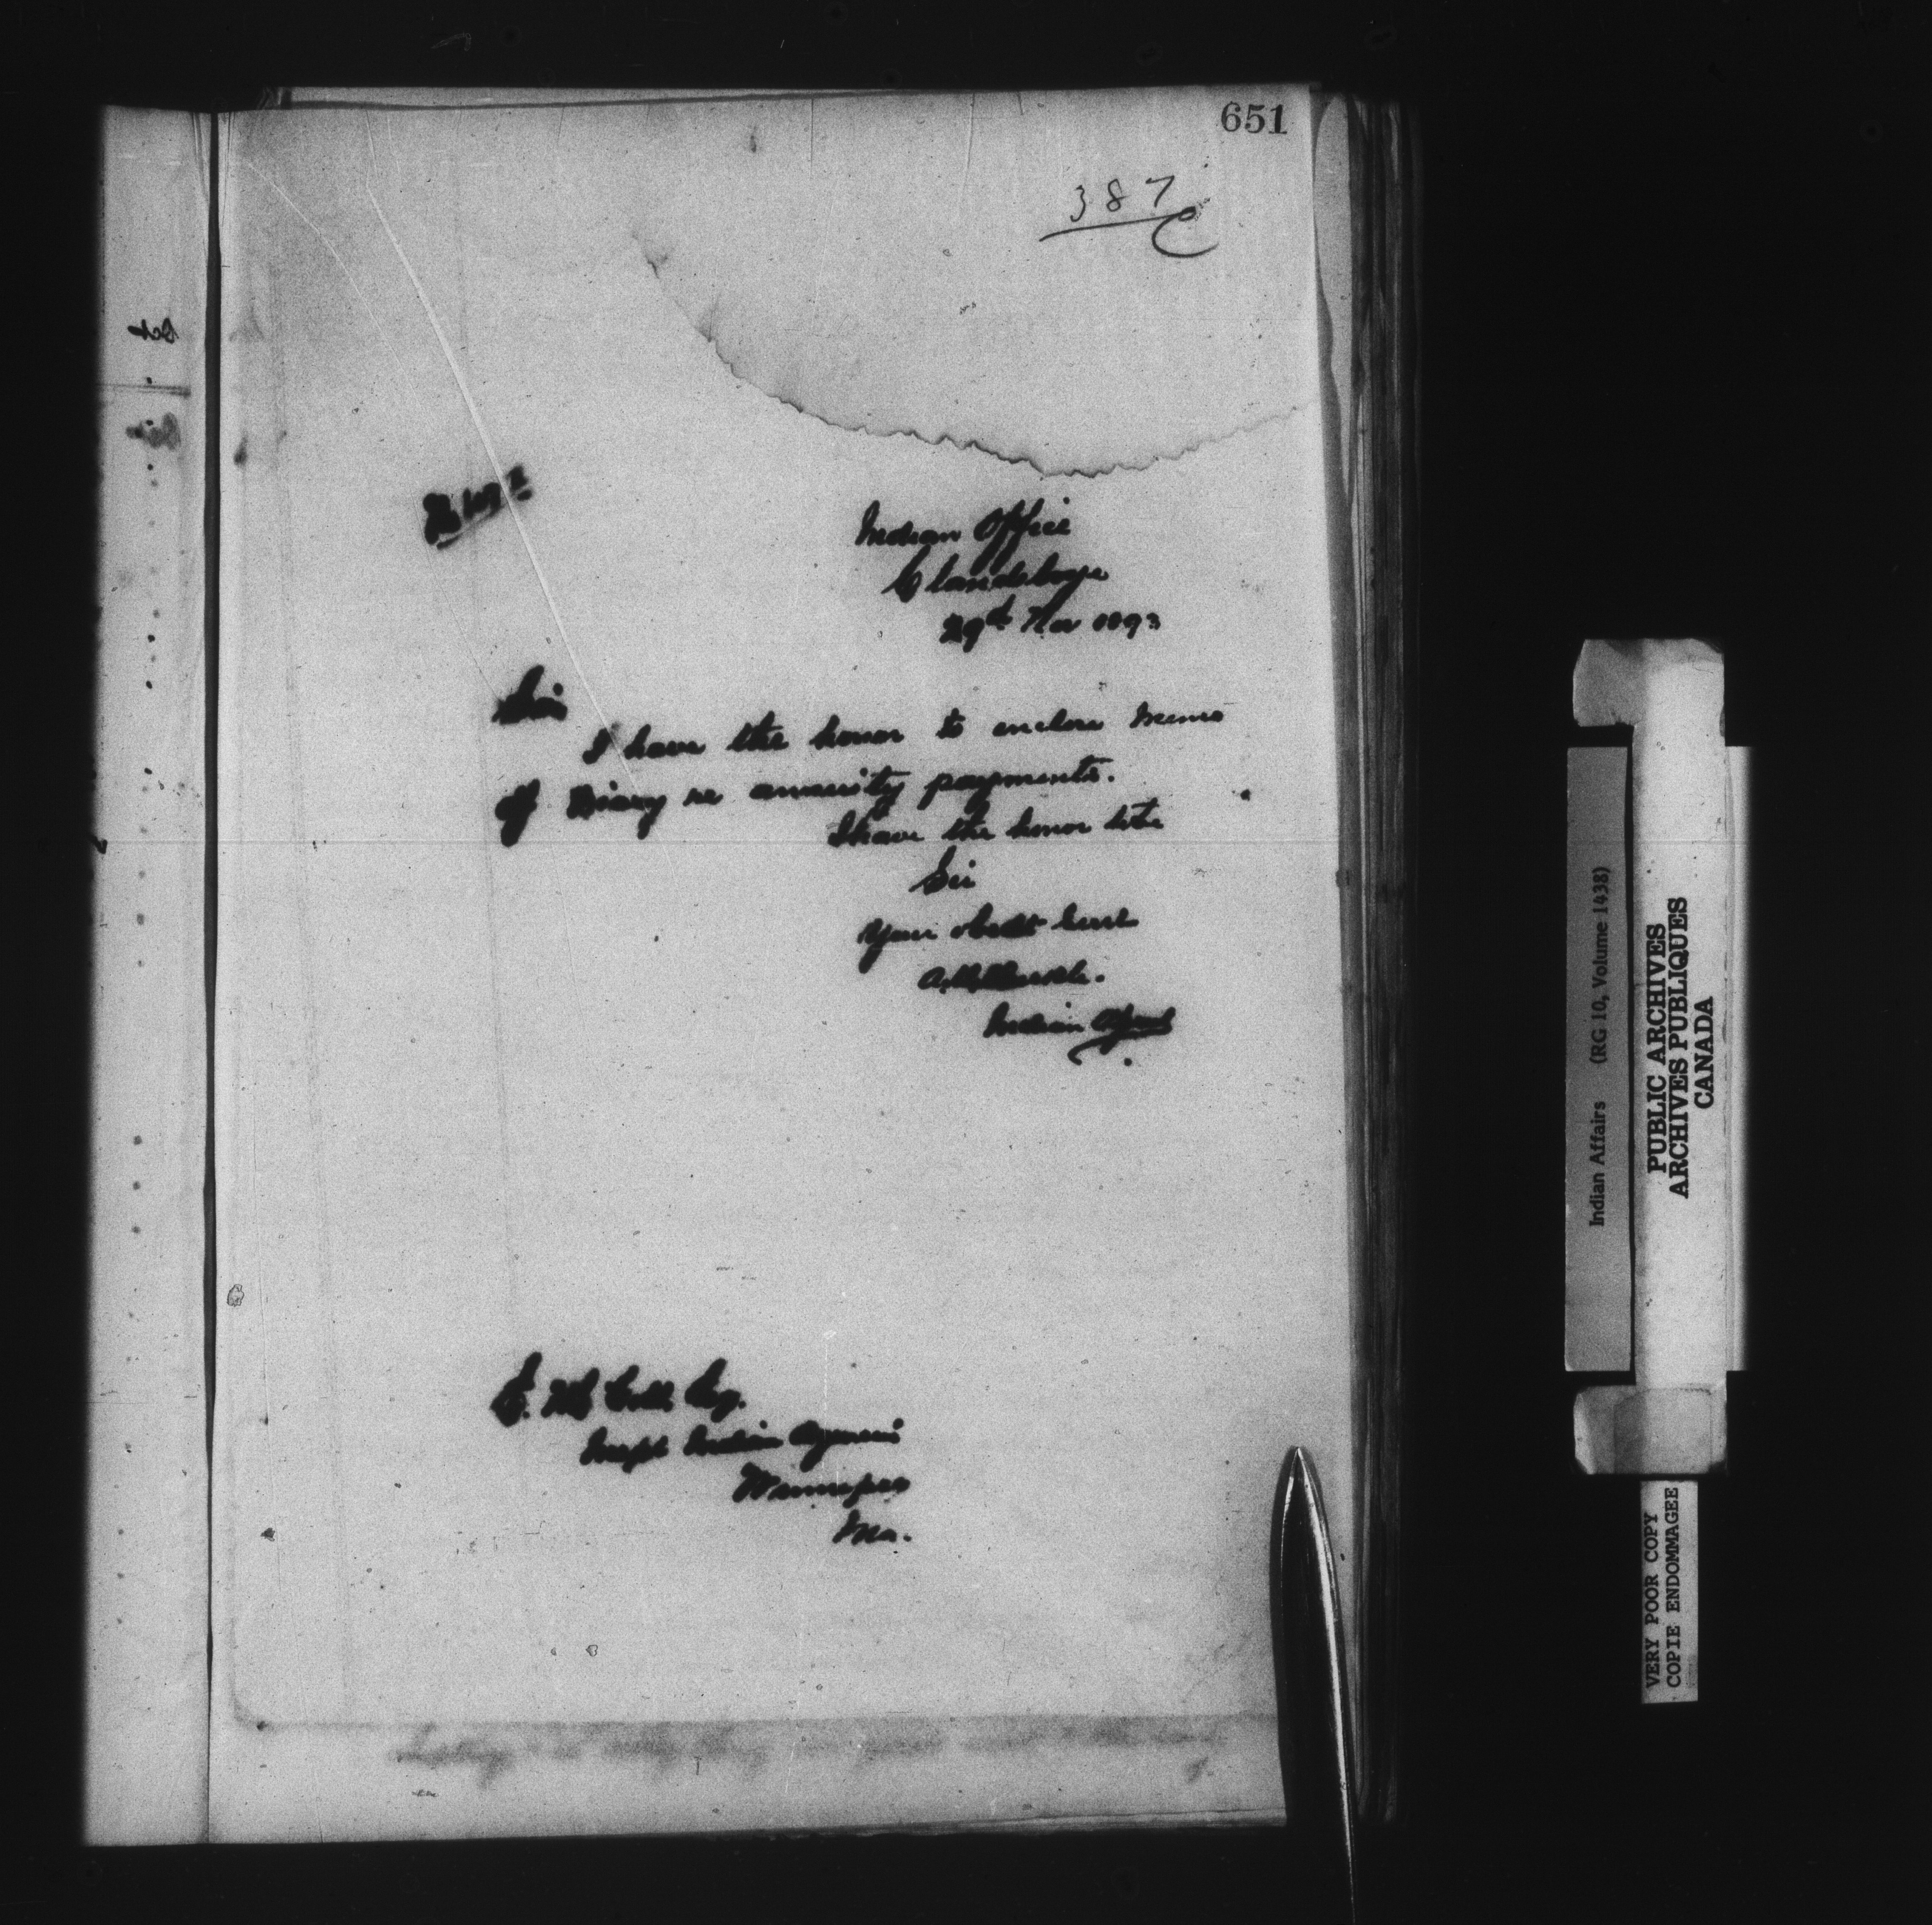 651
387
Indian Office
Clandeboye
29th Nov 1893
Sir
I have the honor to enclose memo
of Diary re annuity payments.
I have the honor to be
Sir
Your obedt servt
Indian Agent
E. McColl Esq.
Inspt Indian Agencies
Winnipeg
Ma.
Indian Affairs (RG 10, Volume 1438)
PUBLIC ARCHIVES
ARCHIVES PUBLIQUES
CANADA
VERY POOR COPY
COPIE ENDOMMAGEE